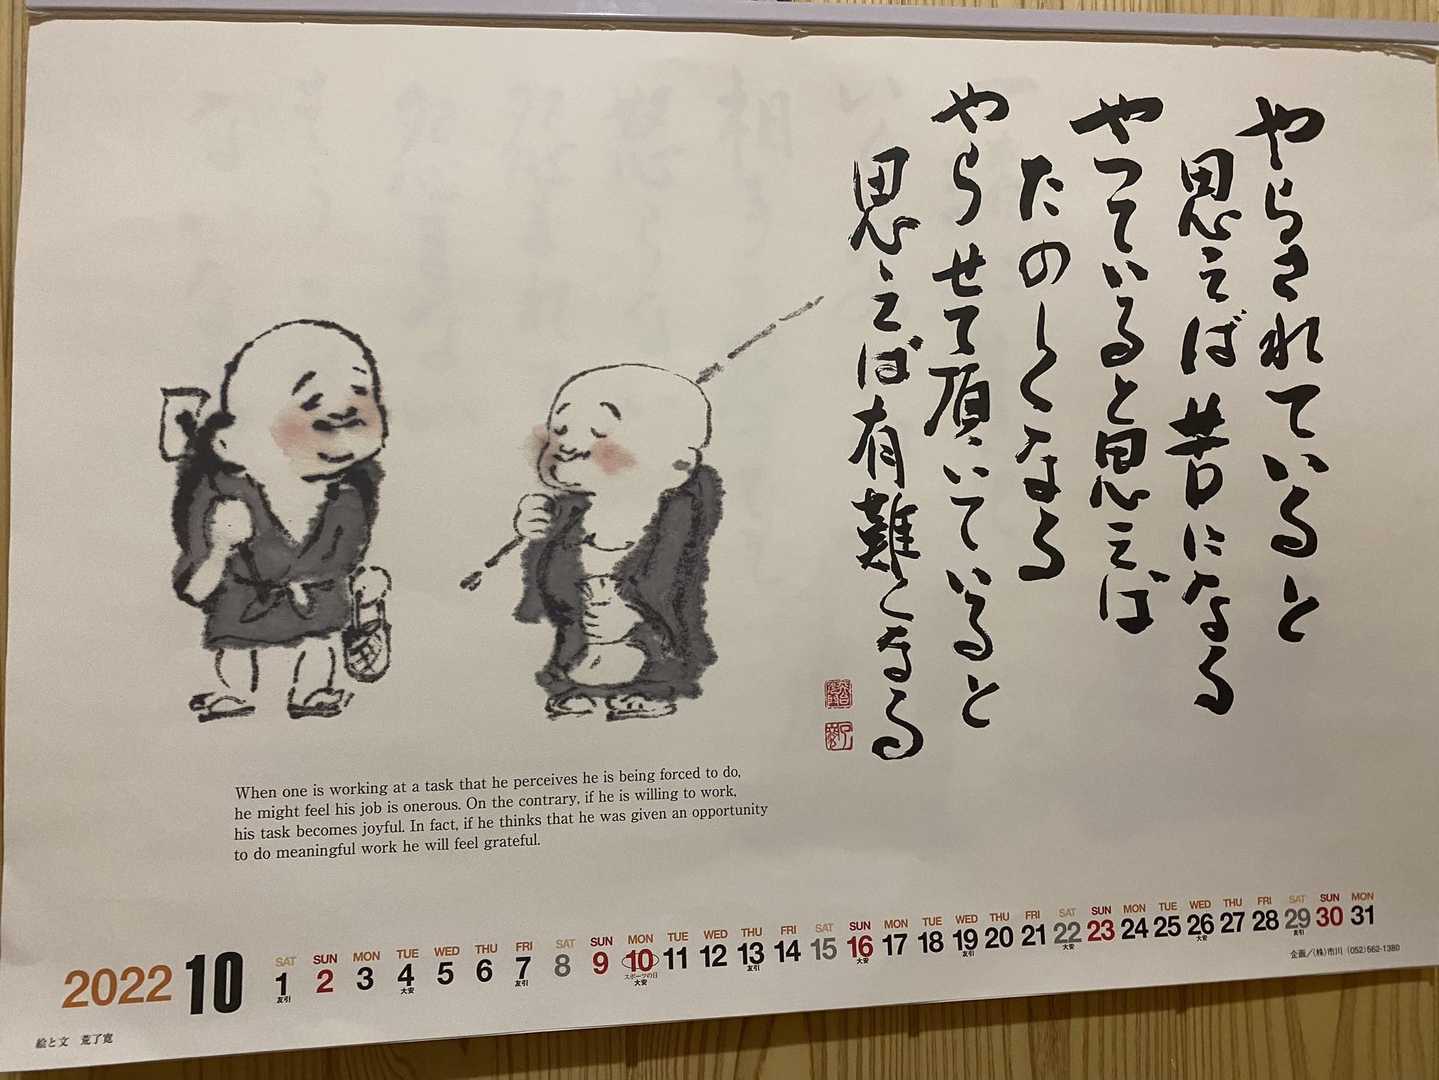 やらされていると
思えば苦になる
やっていると思えば
たのしくなる
やらせて頂いていると
思えば有難くなる
When one is working at a task that he perceives he is being forced to do,
he might feel his job is onerous. On the contrary, if he is willing to work,
his task becomes joyful. In fact, if he thinks that he was given an opportunity
to do meaningful work he will feel grateful.
2022 10
SAT SUN MON TUE WED THU FRI SAT SUN MON TUE WED THU FRI SAT SUN MON TUE WED THU FRI SAT SUN MON TUE WED THU FRI SAT SUN MON
1 2 3 4 5 6 7 8 9 10 11 12 13 14 15 16 17 18 19 20 21 22 23 24 25 26 27 28 29 30 31
友引 大安 友引 スポーツの日 友引 大安 友引 大安 大安 友引
大安
企画/(株)市川 (052)662-1380
絵と文 荒了寛